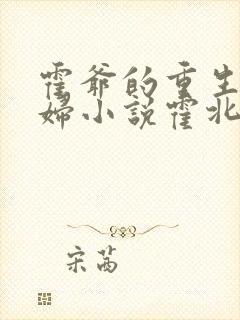 霍爷的重生
妇小说霍北
宋茜